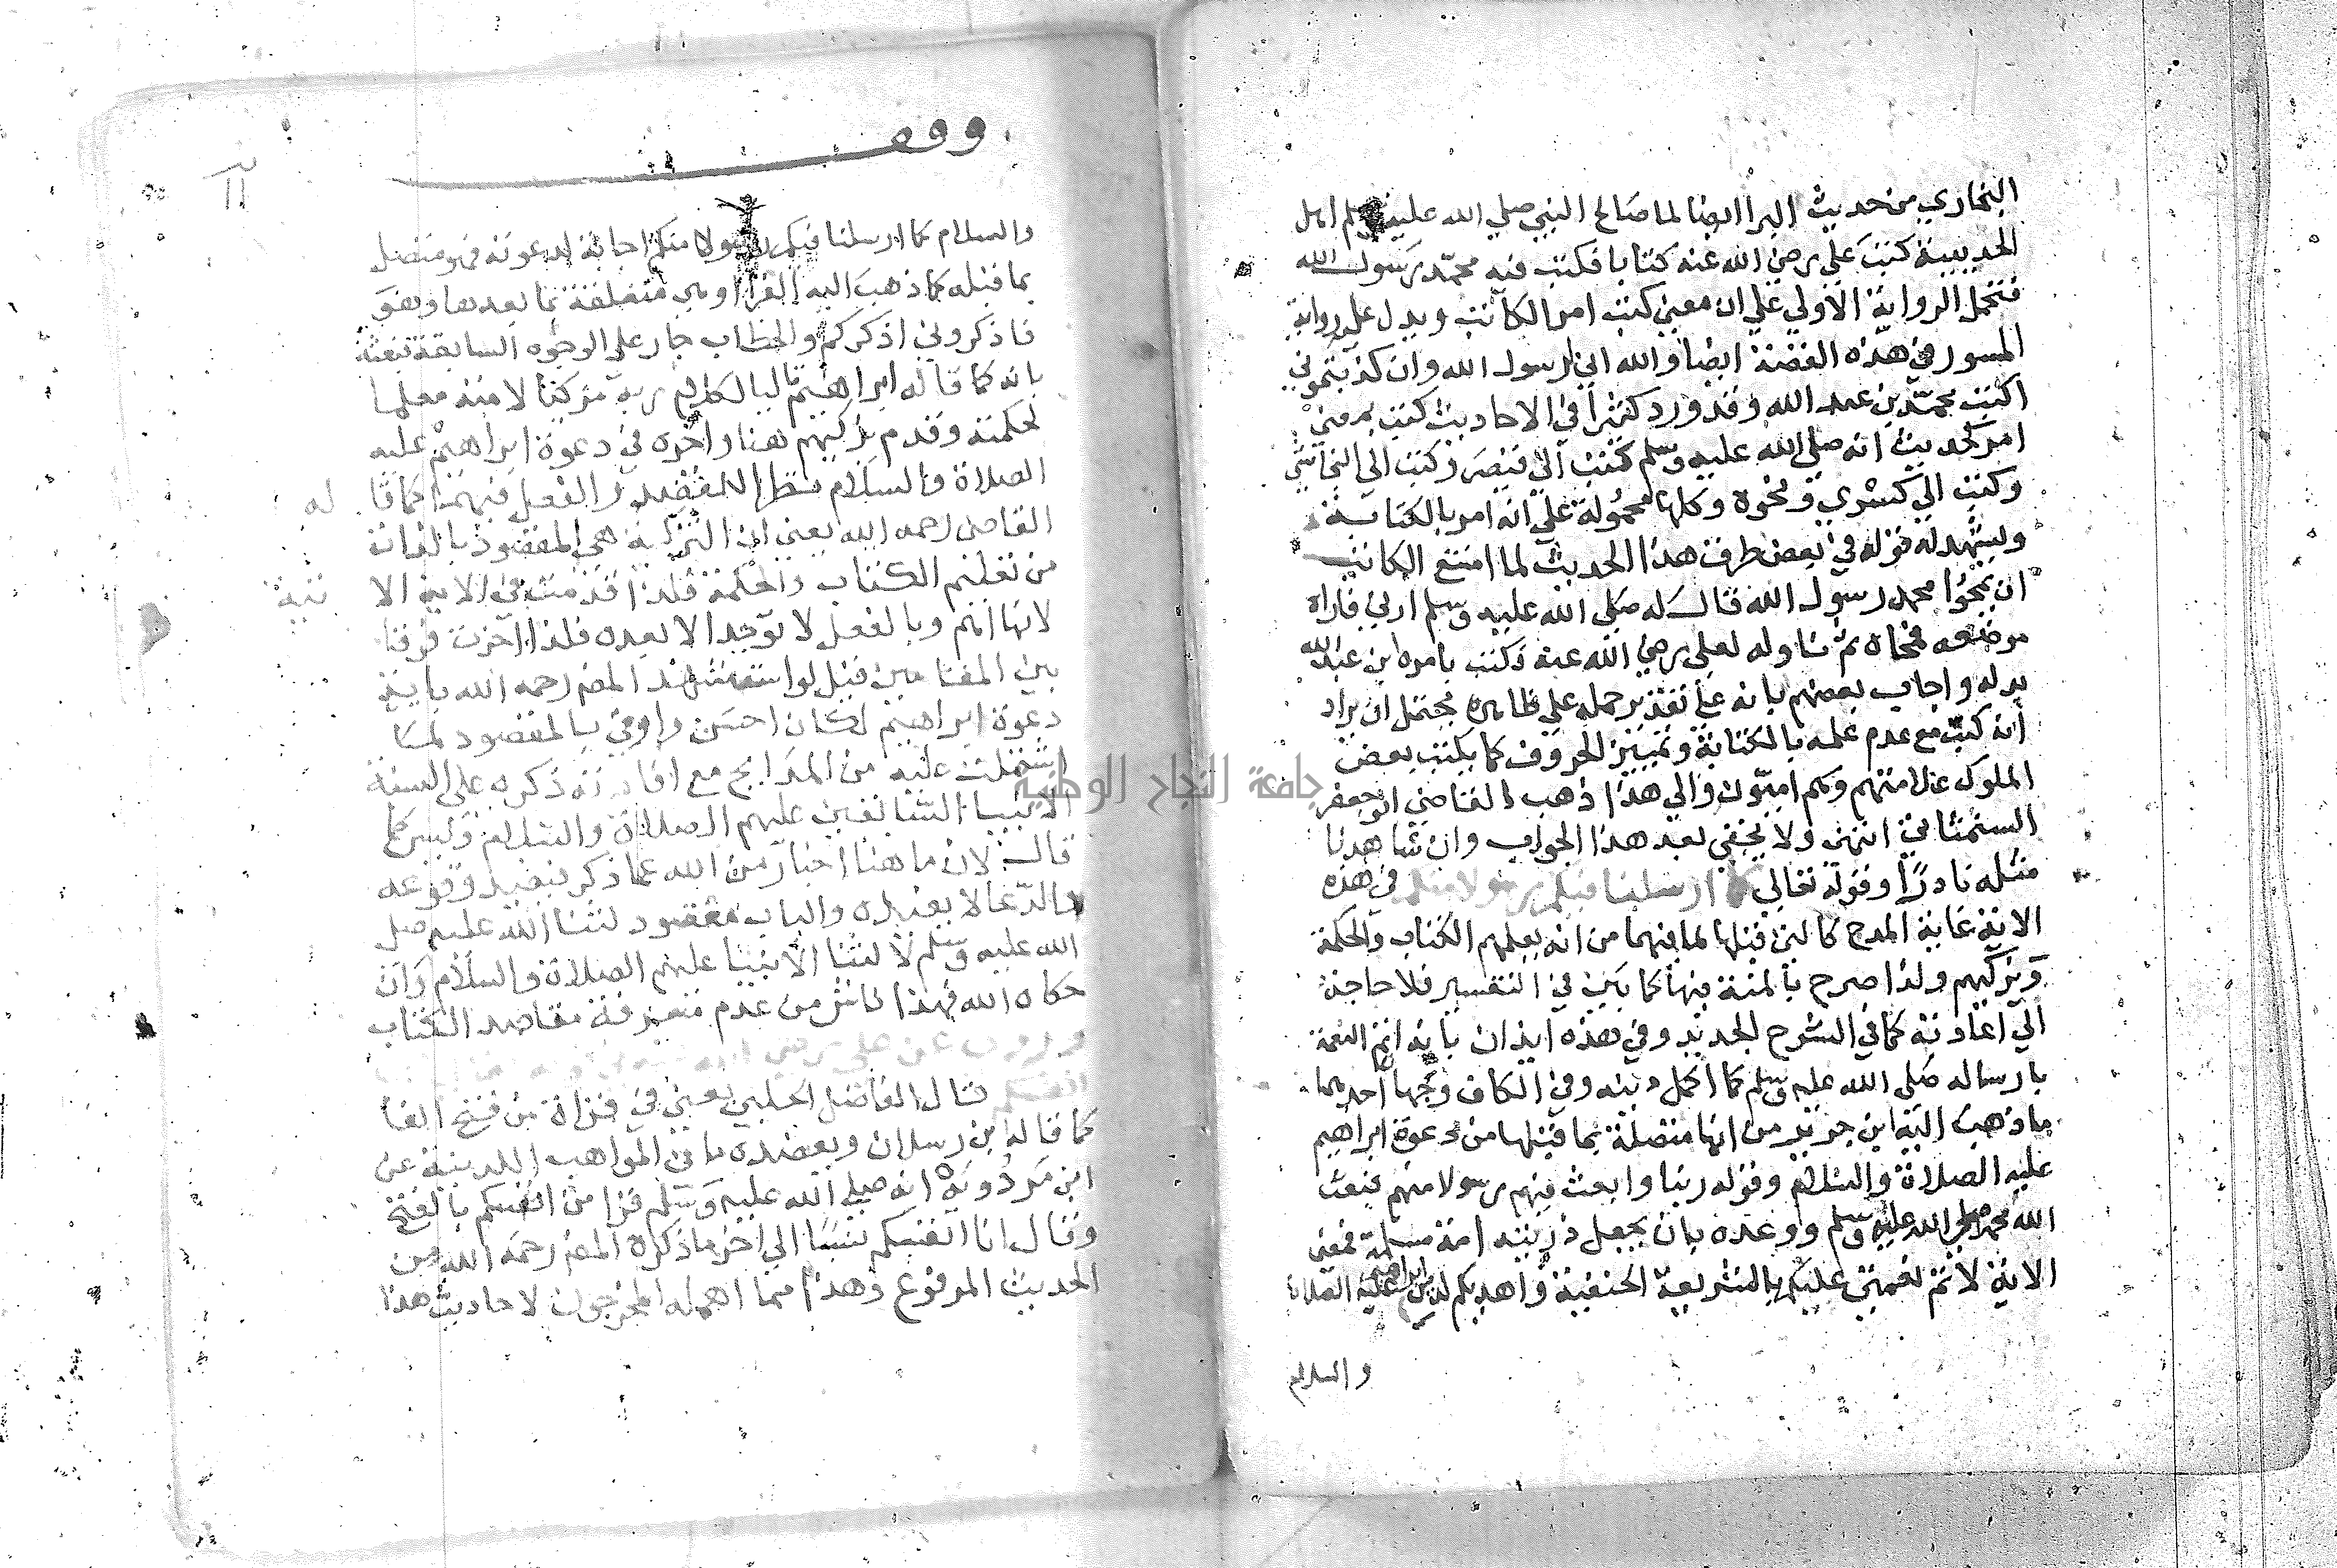 البخاري من حديث البرا ايضا لما صالح النبي صلي الله عليه وسلم اهل
الحديبية كتب علي رضي الله عنه كتابا فكتب فيه محمد رسول الله
فتحمل الرواية الاولي علي ان معني كتب امر الكاتب ويدل عليه رواية
المسور في هذه القصة ايضا والله اني لرسول الله وان كذبتموني
اكتب محمد بن عبد الله وقد ورد كثيرا في الاحاديث كتب بمعني
امر كحديث انه صلي الله عليه وسلم كتب الي قيصر وكتب الي النجاشي
وكتب الي كسري ونحوه وكلها محمولة علي انه امر بالكتابة
ويشهد له قوله في بعض طرف هذا الحديث لما امتنع الكاتب
ان يمحوا محمد رسول الله قال له صلي الله عليه وسلم ارني فاراه
موضعه فمحاه ثم ناوله لعلي رضي الله عنه فكتب بامره ابن عبد الله
بدله واجاب بعضهم بانه علي تقدير حمله علي ظاهره يحتمل ان يراد
انه كتب مع عدم علمه بالكتابة وتمييز الحروف كما يكتب بعض
الملوك علامتهم وهم اميون والي هذا ذهب القاضي ابو جعفر
السمناني انتهي ولا يخفي بعد هذا الجواب وان شاهدنا
مثله نادرا وقوله تعالي كما ارسلنا فيكم رسولا منكم في هذه
الاية غاية المدح كالتي قبلها لما فيهما من انه يعلمهم الكتاب والحكمة
ويزكيهم ولذا صرح بالمنة فيها كما بين في التفسير فلا حاجة
الي اعادته كما في الشرح الجديد وفي هذه ايذان بانه اتم النعمة
بارساله صلي الله عليه وسلم كما اكمل دينه وفي الكاف وجها احدهما
ما ذهب اليه ابن جرير من انها متصلة بما قبلها من دعوة ابراهيم
عليه الصلاة والسلام وقوله ربنا وابعث فيهم رسولا منهم فبعث
الله محمدا صلي الله عليه وسلم ووعده بان يجعل ذريته امة مسلمة فمعني
الاية لاتم نعمتي عليكم بالشريعة الحنفية واهديكم لدين ابراهيم عليه الصلاة
والسلام
وقف
والسلام كما ارسلنا فيكم رسولا منكم اجابة لدعوته فهو متصل
بما قبله كما ذهب اليه الفرا او هي متعلقة بما بعدها وهو
فاذكروني اذكركم والخطاب جار علي الوجوه السابقة
بانه كما قاله ابراهيم تاليا لكلام ربه مزكيا لامته معلما
لحكمته وقدم يزكيهم هنا واخره في دعوة ابراهيم عليه
الصلاة والسلام نظرا للقصد والفعل فيهما كما قاله
القاضي رحمه الله يعني ان التزكية هي المقصود بالذات
من تعليم الكتاب والحكمة فلذا قدمت في الاية الا
نية
لانها اهم وبالفعل لا توجد الا بعده فلذا اخرت فرقا
بين المقامين قيل لو استشهد المص رحمه الله باية
دعوة ابراهيم لكان احسن واوفي بالمقصود لما
اشتملت عليه من المدايح مع افادته ذكره علي السنة
الانبيا السابقين عليهم الصلاة والسلام وليس كما
قال لان ما هنا اخبار من الله عما ذكر فيفيد وقوعه
والدعا لا يفيده والباب مقصود لثنا الله عليه صلي
الله عليه وسلم لا لثنا الانبيا عليهم الصلاة والسلام وان
حكاه الله فهذا ناش من عدم معرفة مقاصد الكتاب
وروي عن علي
قال الفاضل الحلبي يعني في قراة من فتح الفا
كما قاله ابن رسلان ويعضده ما في المواهب اللدنية عن
ابن مردويه انه صلي الله عليه وسلم قرا من انفسكم بالفتح
وقال انا انفسكم نسبا الي اخر ما ذكره المص رحمه الله من
الحديث المرفوع وهذا مما اهمله المخرجون لاحاديث هذا
جامعة النجاح الوطنية